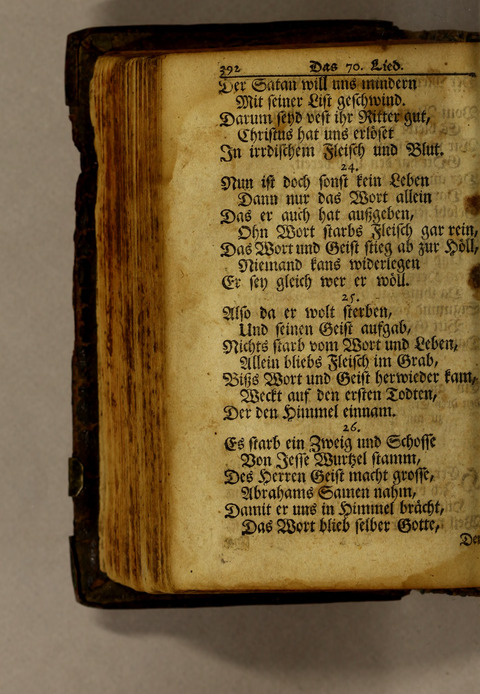 392 Das 70. Lied.
Der Satan will uns mindern
Mit seiner List geschwind.
Darum seyd vest ihr Ritter gut,
Christus hat uns erlöset
In irrdischem Fleisch und Blut.
24.
Nun ist doch sonst kein Leben
Dann nur das Wort allein
Das er auch hat außgeben,
Ohn Wort starbs Fleisch gar rein,
Das Wort und Geist stieg ab zur Höll,
Niemand kans widerlegen
Er sey gleich wer er wöll.
25.
Also da er wolt sterben,
Und seinen Geist aufgab,
Nichts starb vom Wort und Leben,
Allein bliebs Fleisch im Grab,
Bißs Wort und Geist herwieder kam,
Weckt auf den ersten Todten,
Der den Himmel einnam.
26.
Es starb ein Zweig und Schosse
Von Jesse Wurtzel stamm,
Des Herren Geist macht grosse,
Abrahams Samen nahm,
Damit er uns in Himmel brächt,
Das Wort blieb selber Gotte,